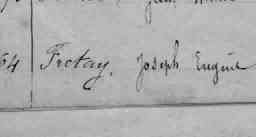 64 Frotay, Joseph Eugène